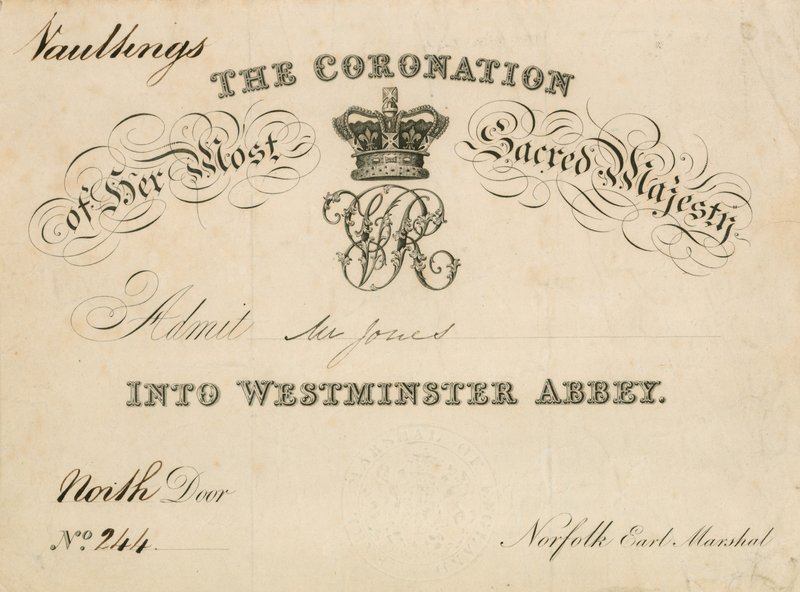 Vaultings
THE CORONATION
of Her Most Sacred Majesty
VR
Admit Mr Jones
INTO WESTMINSTER ABBEY.
North Door
No. 244
Norfolk Earl Marshal